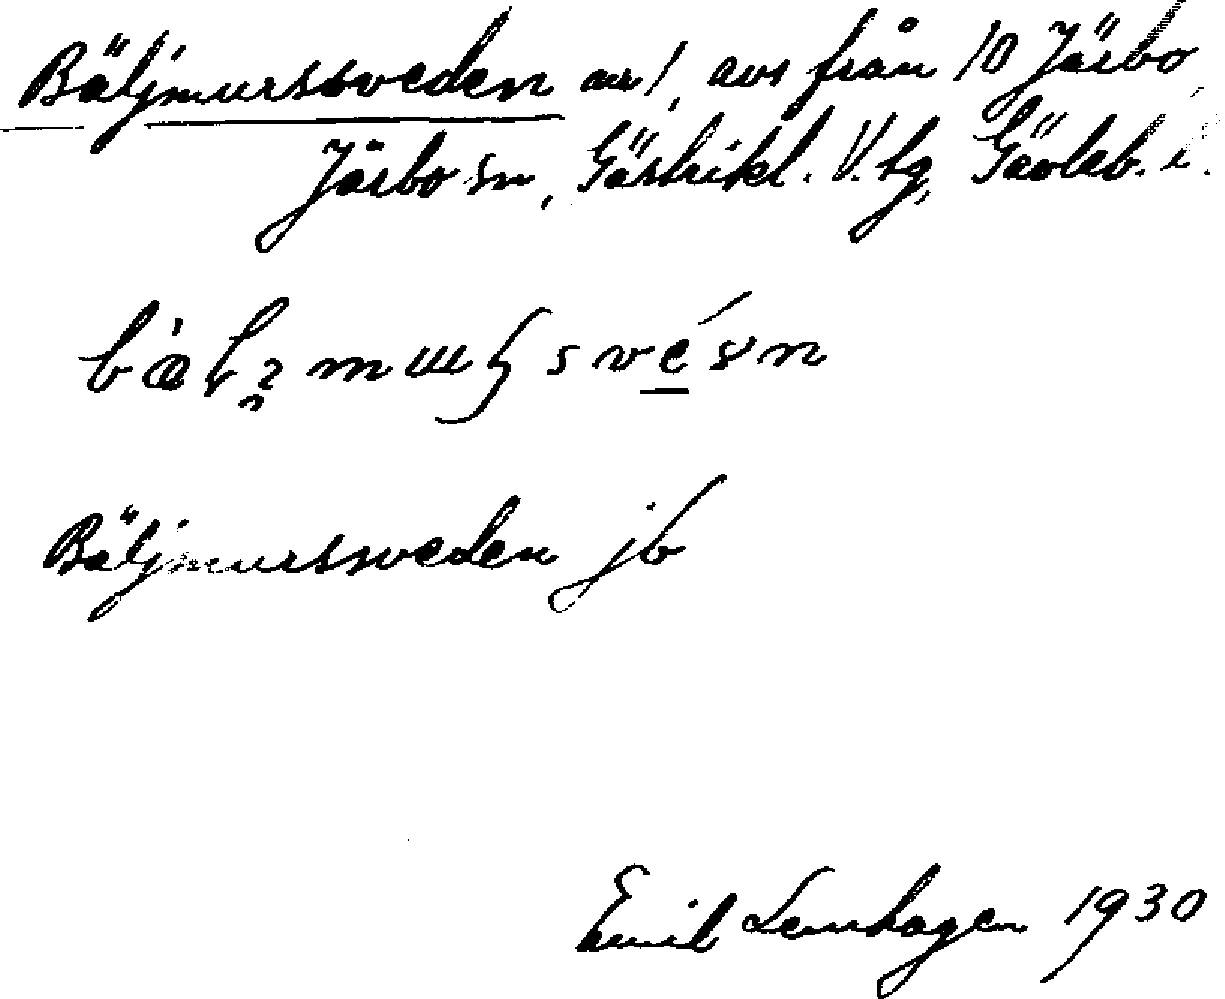 Bäljmurssveden av 1, avs från 10 Järbo,
Järbo sn, Gästrikl. V. tg, Gävleb. l.
Bäljmurssveden jb
Emil Lenhagen 1930